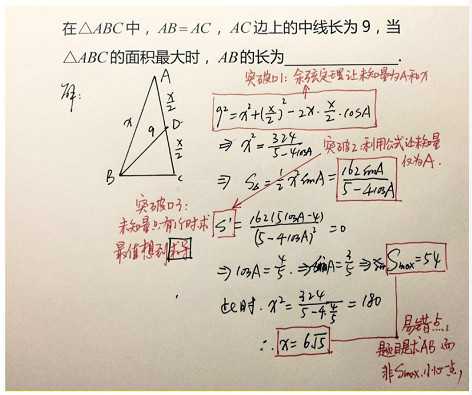 在△ABC中，AB=AC，AC边上的中线长为9，当
△ABC的面积最大时，AB的长为________.
解:
突破口1: 余弦定理让未知量为A和x
A
x/2
x
D
9
x/2
B
C
9²=x²+(x/2)²-2x·x/2·cosA
⇒ x²=324/(5-4cosA)
突破2:利用公式让未知量
仅为A.
⇒ S△=1/2 x² sinA = 162sinA/(5-4cosA)
突破口3:
未知量只有1个时求
最值想到求导
S'=162(5cosA-4)/(5-4cosA)²=0
⇒cosA=4/5. ⇒sinA=3/5 ⇒ Smax=54
此时. x²=324/(5-4·4/5)=180
∴ x=6√5
易错点,
题目是求AB 而
非Smax.小心一点,